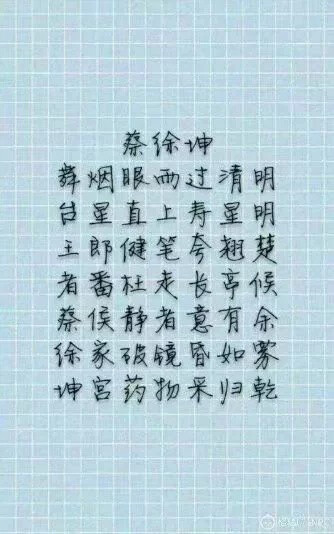 蔡徐坤
舞烟眼雨过清明
台星直上寿星明
王郎健笔夸翘楚
者番枉走长亭候
蔡侯静者意有余
徐家破镜昏如雾
坤宫药物采归乾